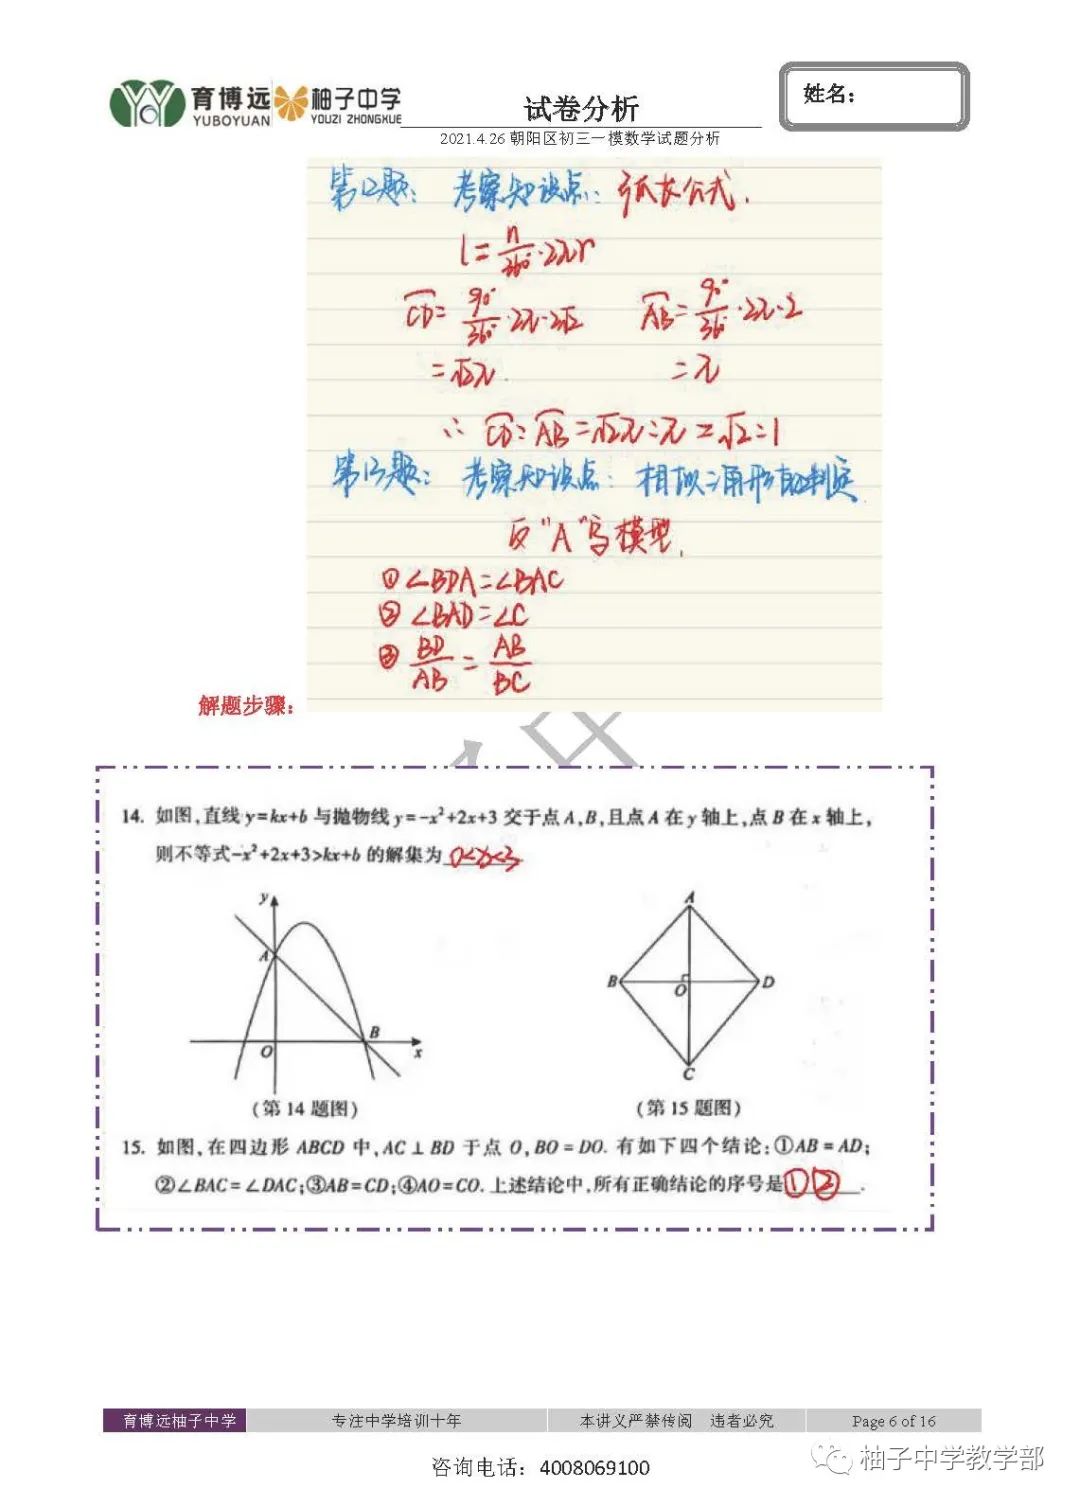 育博远 柚子中学
YUBOYUAN YOUZI ZHONGXUE
试卷分析
姓名：
2021.4.26 朝阳区初三一模数学试题分析
第12题： 考察知识点： 弧长公式.
l = n/360° ·2πr
CD = 90°/360° ·2π·2√2 AB = 90°/360° ·2π·2
= √2π. = π
∴ CD : AB = √2π : π = √2 : 1
第13题： 考察知识点： 相似三角形的判定
反“A”字模型.
① ∠BDA=∠BAC
② ∠BAD=∠C
③ BD/AB = AB/BC
解题步骤：
14. 如图,直线 y=kx+b 与抛物线 y=-x²+2x+3 交于点 A,B,且点 A 在 y 轴上,点 B 在 x 轴上,
则不等式-x²+2x+3>kx+b 的解集为 0<x<3
y
A
B
O
x
A
B
O
D
C
(第 14 题图)
(第 15 题图)
15. 如图,在四边形 ABCD 中,AC⊥BD 于点 O,BO=DO. 有如下四个结论:①AB=AD;
②∠BAC=∠DAC;③AB=CD;④AO=CO. 上述结论中,所有正确结论的序号是①②.
育博远柚子中学 专注中学培训十年 本讲义严禁传阅 违者必究 Page 6 of 16
咨询电话：4008069100
柚子中学教学部